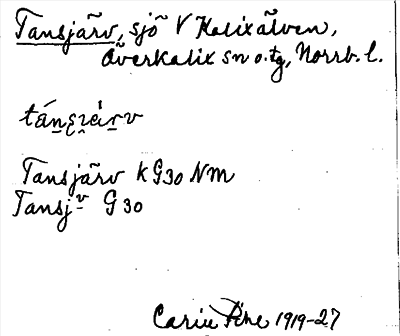 Tansjärv, sjö V Kalixälven,
Överkalix sn o. tg, Norrb. l.
Tansjärv k G30 NM
Tansjv G30
1919-27